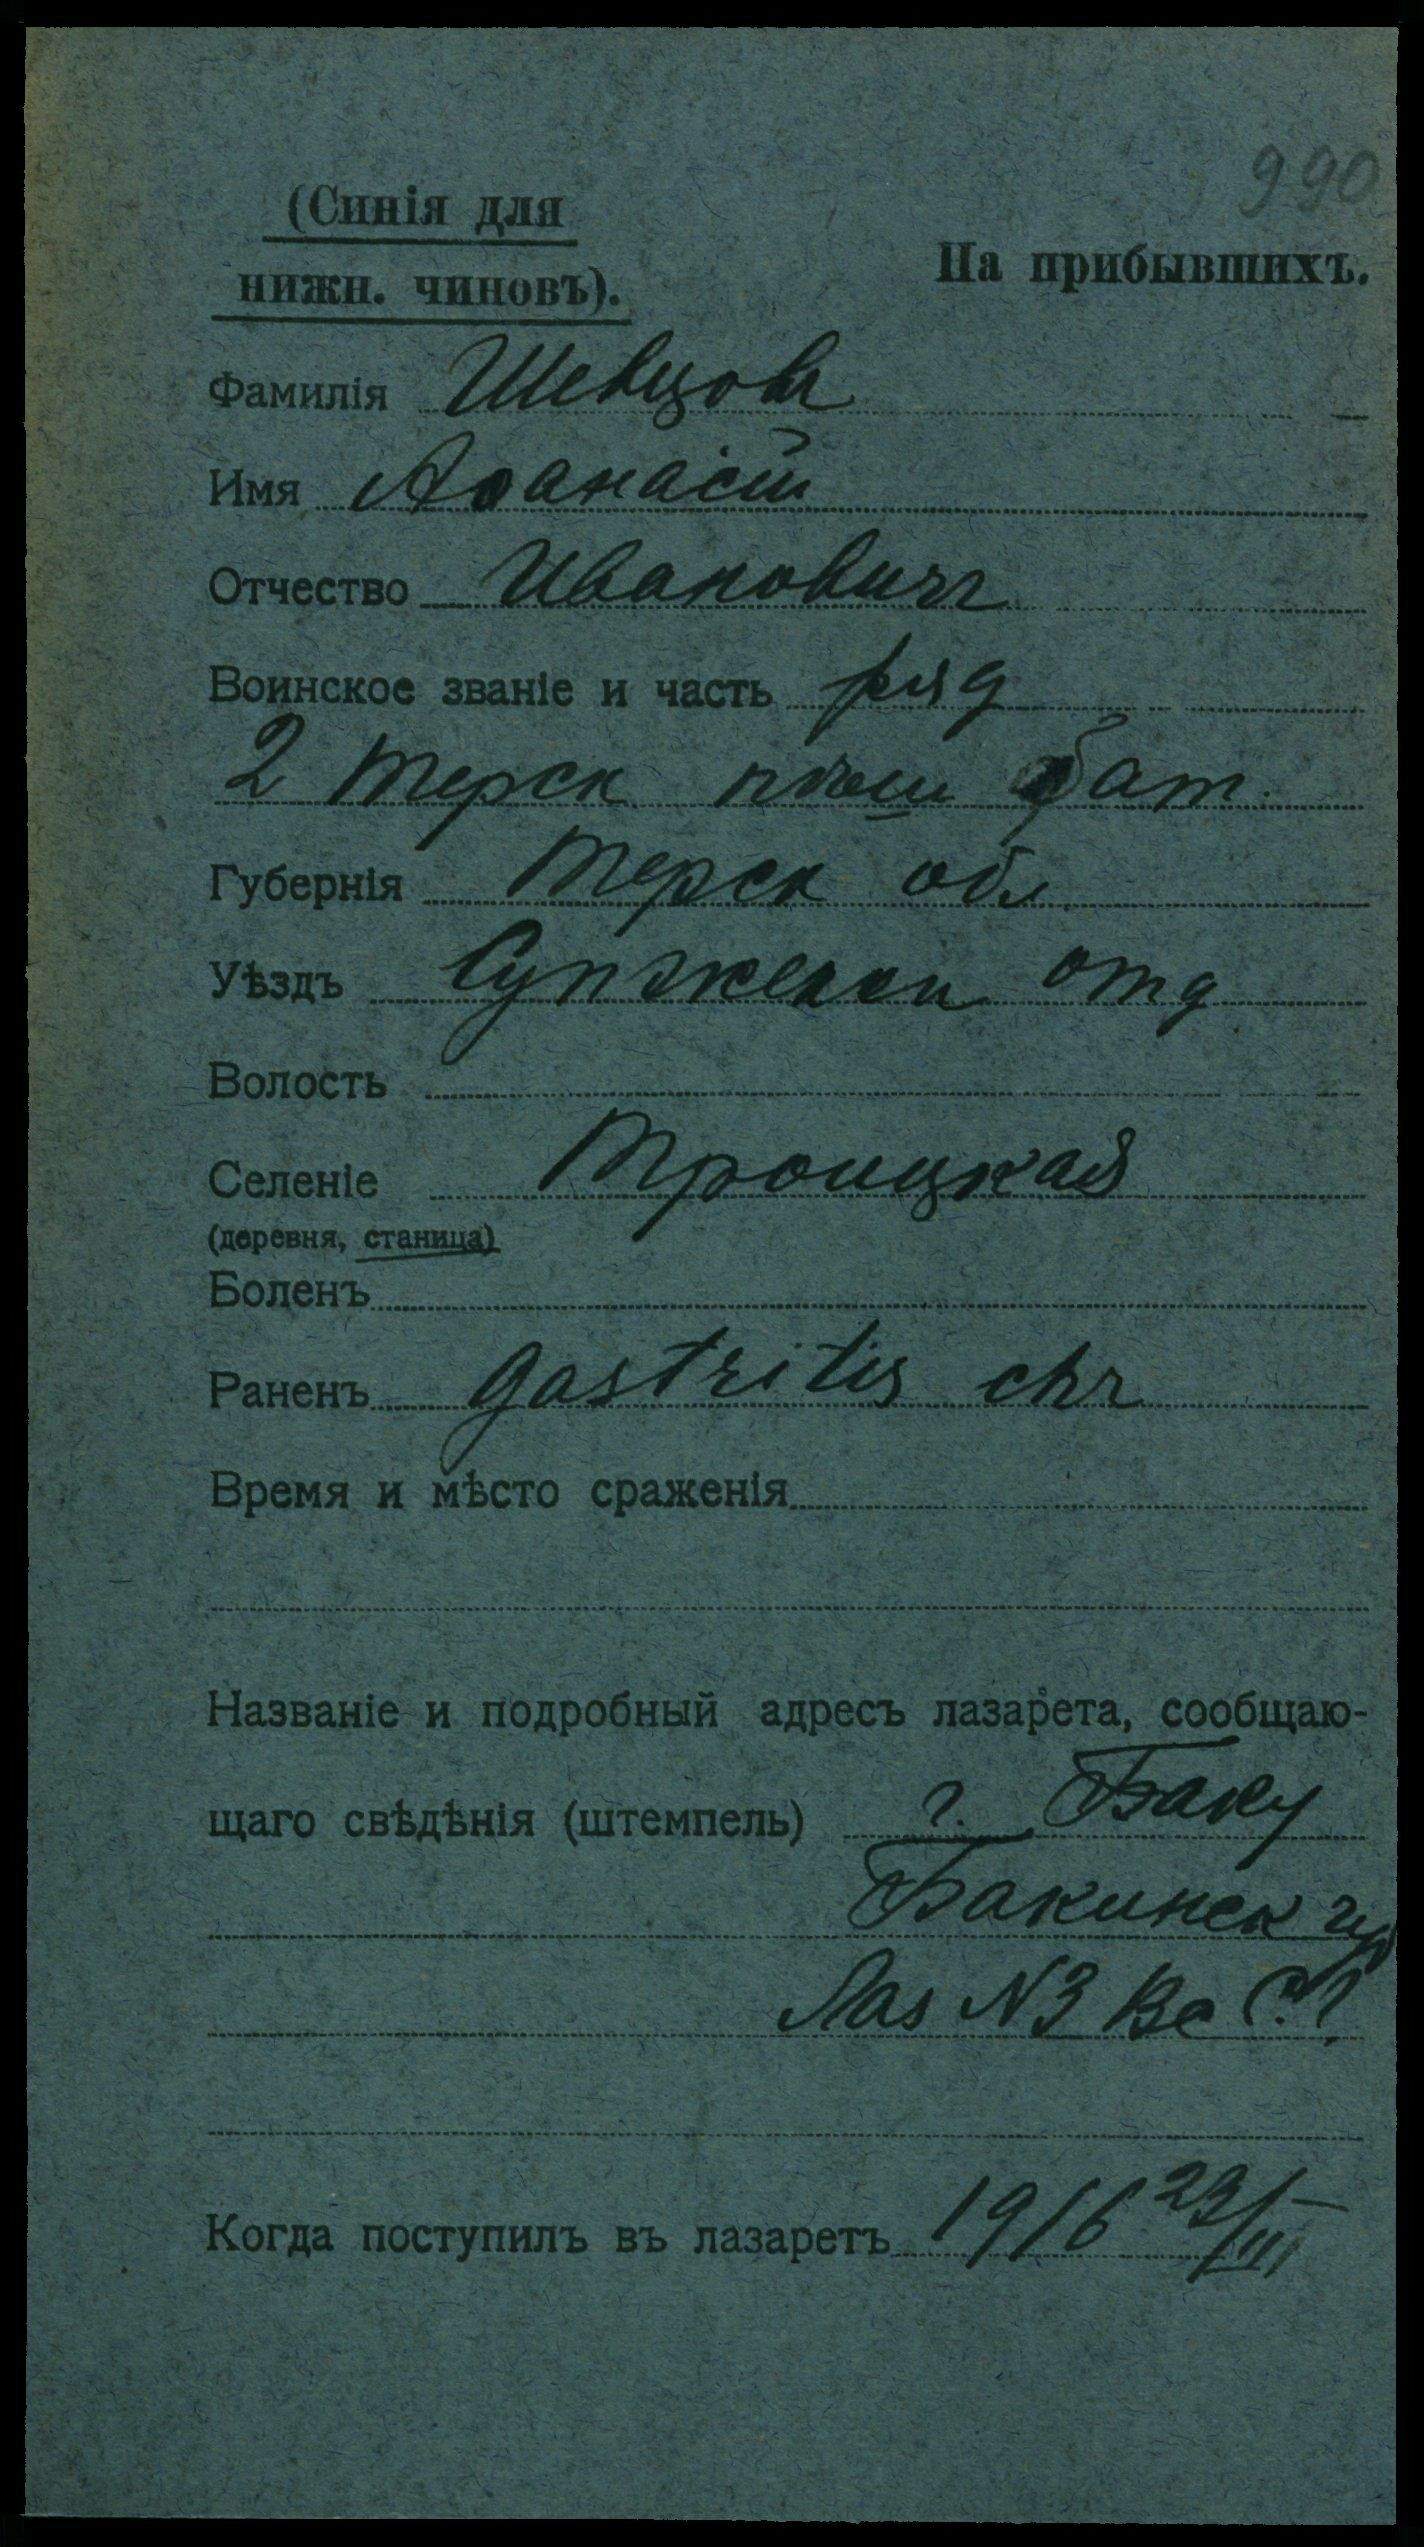 990
(Синія для
нижн. чиновъ).
На прибывшихъ.
Фамилія Шевцовъ
Имя Аѳанасій
Отчество Ивановичъ
Воинское званіе и часть ряд
2 Терск пѣш бат.
Губернія Терск обл
Уѣздъ Сунженск отд
Волость
Селеніе Троицкая
(деревня, станица)
Боленъ
Раненъ gastritis chr
Время и мѣсто сраженія
Названіе и подробный адресъ лазарета, сообщаю-
щаго свѣдѣнія (штемпель) г. Баку
Бакинск губ
Лаз №3 Вс С.Г.
Когда поступилъ въ лазаретъ 1916 23/III